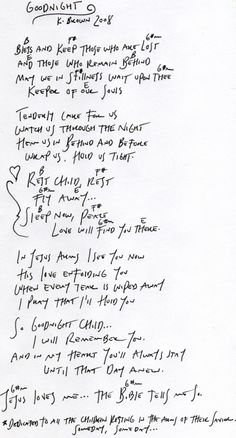 GOODNIGHT
K. BROWN 2008
B F# G#m
BLESS AND KEEP THOSE WHO ARE LOST
E B
AND THOSE WHO REMAIN BEHIND
F# G#m
MAY WE IN STILLNESS WAIT UPON THEE
E
KEEPER OF OUR SOULS
TENDERLY CARE FOR US
WATCH US THROUGH THE NIGHT
HEM US IN BEHIND AND BEFORE
WRAP US. HOLD US TIGHT.
B F#
REST CHILD, REST
G#m E
FLY AWAY...
B F#
SLEEP NOW, PEACE
G#m E
LOVE WILL FIND YOU THERE.
IN JESUS ARMS I SEE YOU NOW
HIS LOVE ENFOLDING YOU
WHEN EVERY TEAR IS WIPED AWAY
I PRAY THAT I'LL HOLD YOU
SO GOODNIGHT CHILD...
I WILL REMEMBER YOU.
AND IN MY HEART YOU'LL ALWAYS STAY
UNTIL THAT DAY ANEW.
G#m E B F# G#m
JESUS LOVES ME... THE BIBLE TELLS ME SO.
*DEDICATED TO ALL THE CHILDREN RESTING IN THE ARMS OF THEIR SAVIOR.
SOMEDAY, SOMEDAY...